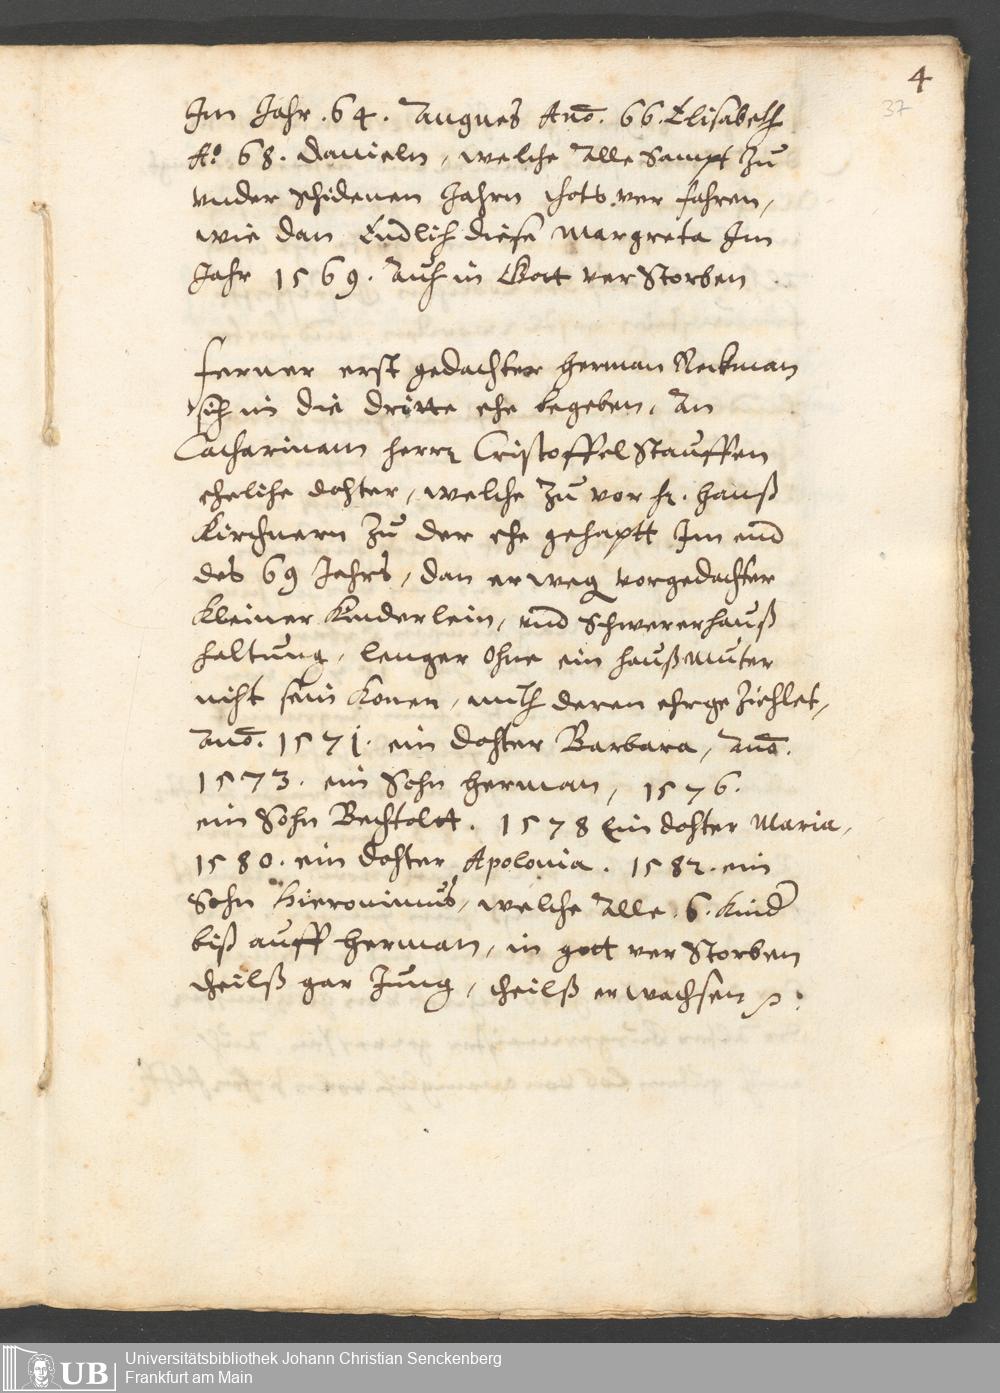 4
37
Im Jahr .64. Angnes Año. 66. Elisabeth
Aº 68. Danieln, welche Alle Sampt Zu
vnder Schidenen Jahrn thots ver fahren,
wie dan Endlich diese Margreta Im
Jahr 1569. Auch in Gott ver Storben
Ferner erst gedachter Herman Reckman
sich in die dritte ehe begeben, An
Catharinam Herrn Cristoffel Stauffen
eheliche dohter, welche Zu vor H. Hanß
Kirchnern Zu der ehe gehaptt Im end
des 69 Jahrs, dan er weg vorgedachter
Kleiner Kinderlein, vnd Schwererhauß
haltung, lenger Ohne ein haußmuter
niht sein Konen, mith deren ehrge Ziehlet,
Año. 1571. ein dohter Barbara, Año.
1573. ein Sohn Herman, 1576.
ein Sohn Bechtolt. 1578 Ein dohter Maria,
1580. ein dohter Apolonia. 1582. ein
Sohn Hieronimus, welche Alle .6. Kind
biß auff Herman, in gott ver Storben
theilß gar Jung, theilß er wachsen
UB
Universitätsbibliothek Johann Christian Senckenberg
Frankfurt am Main